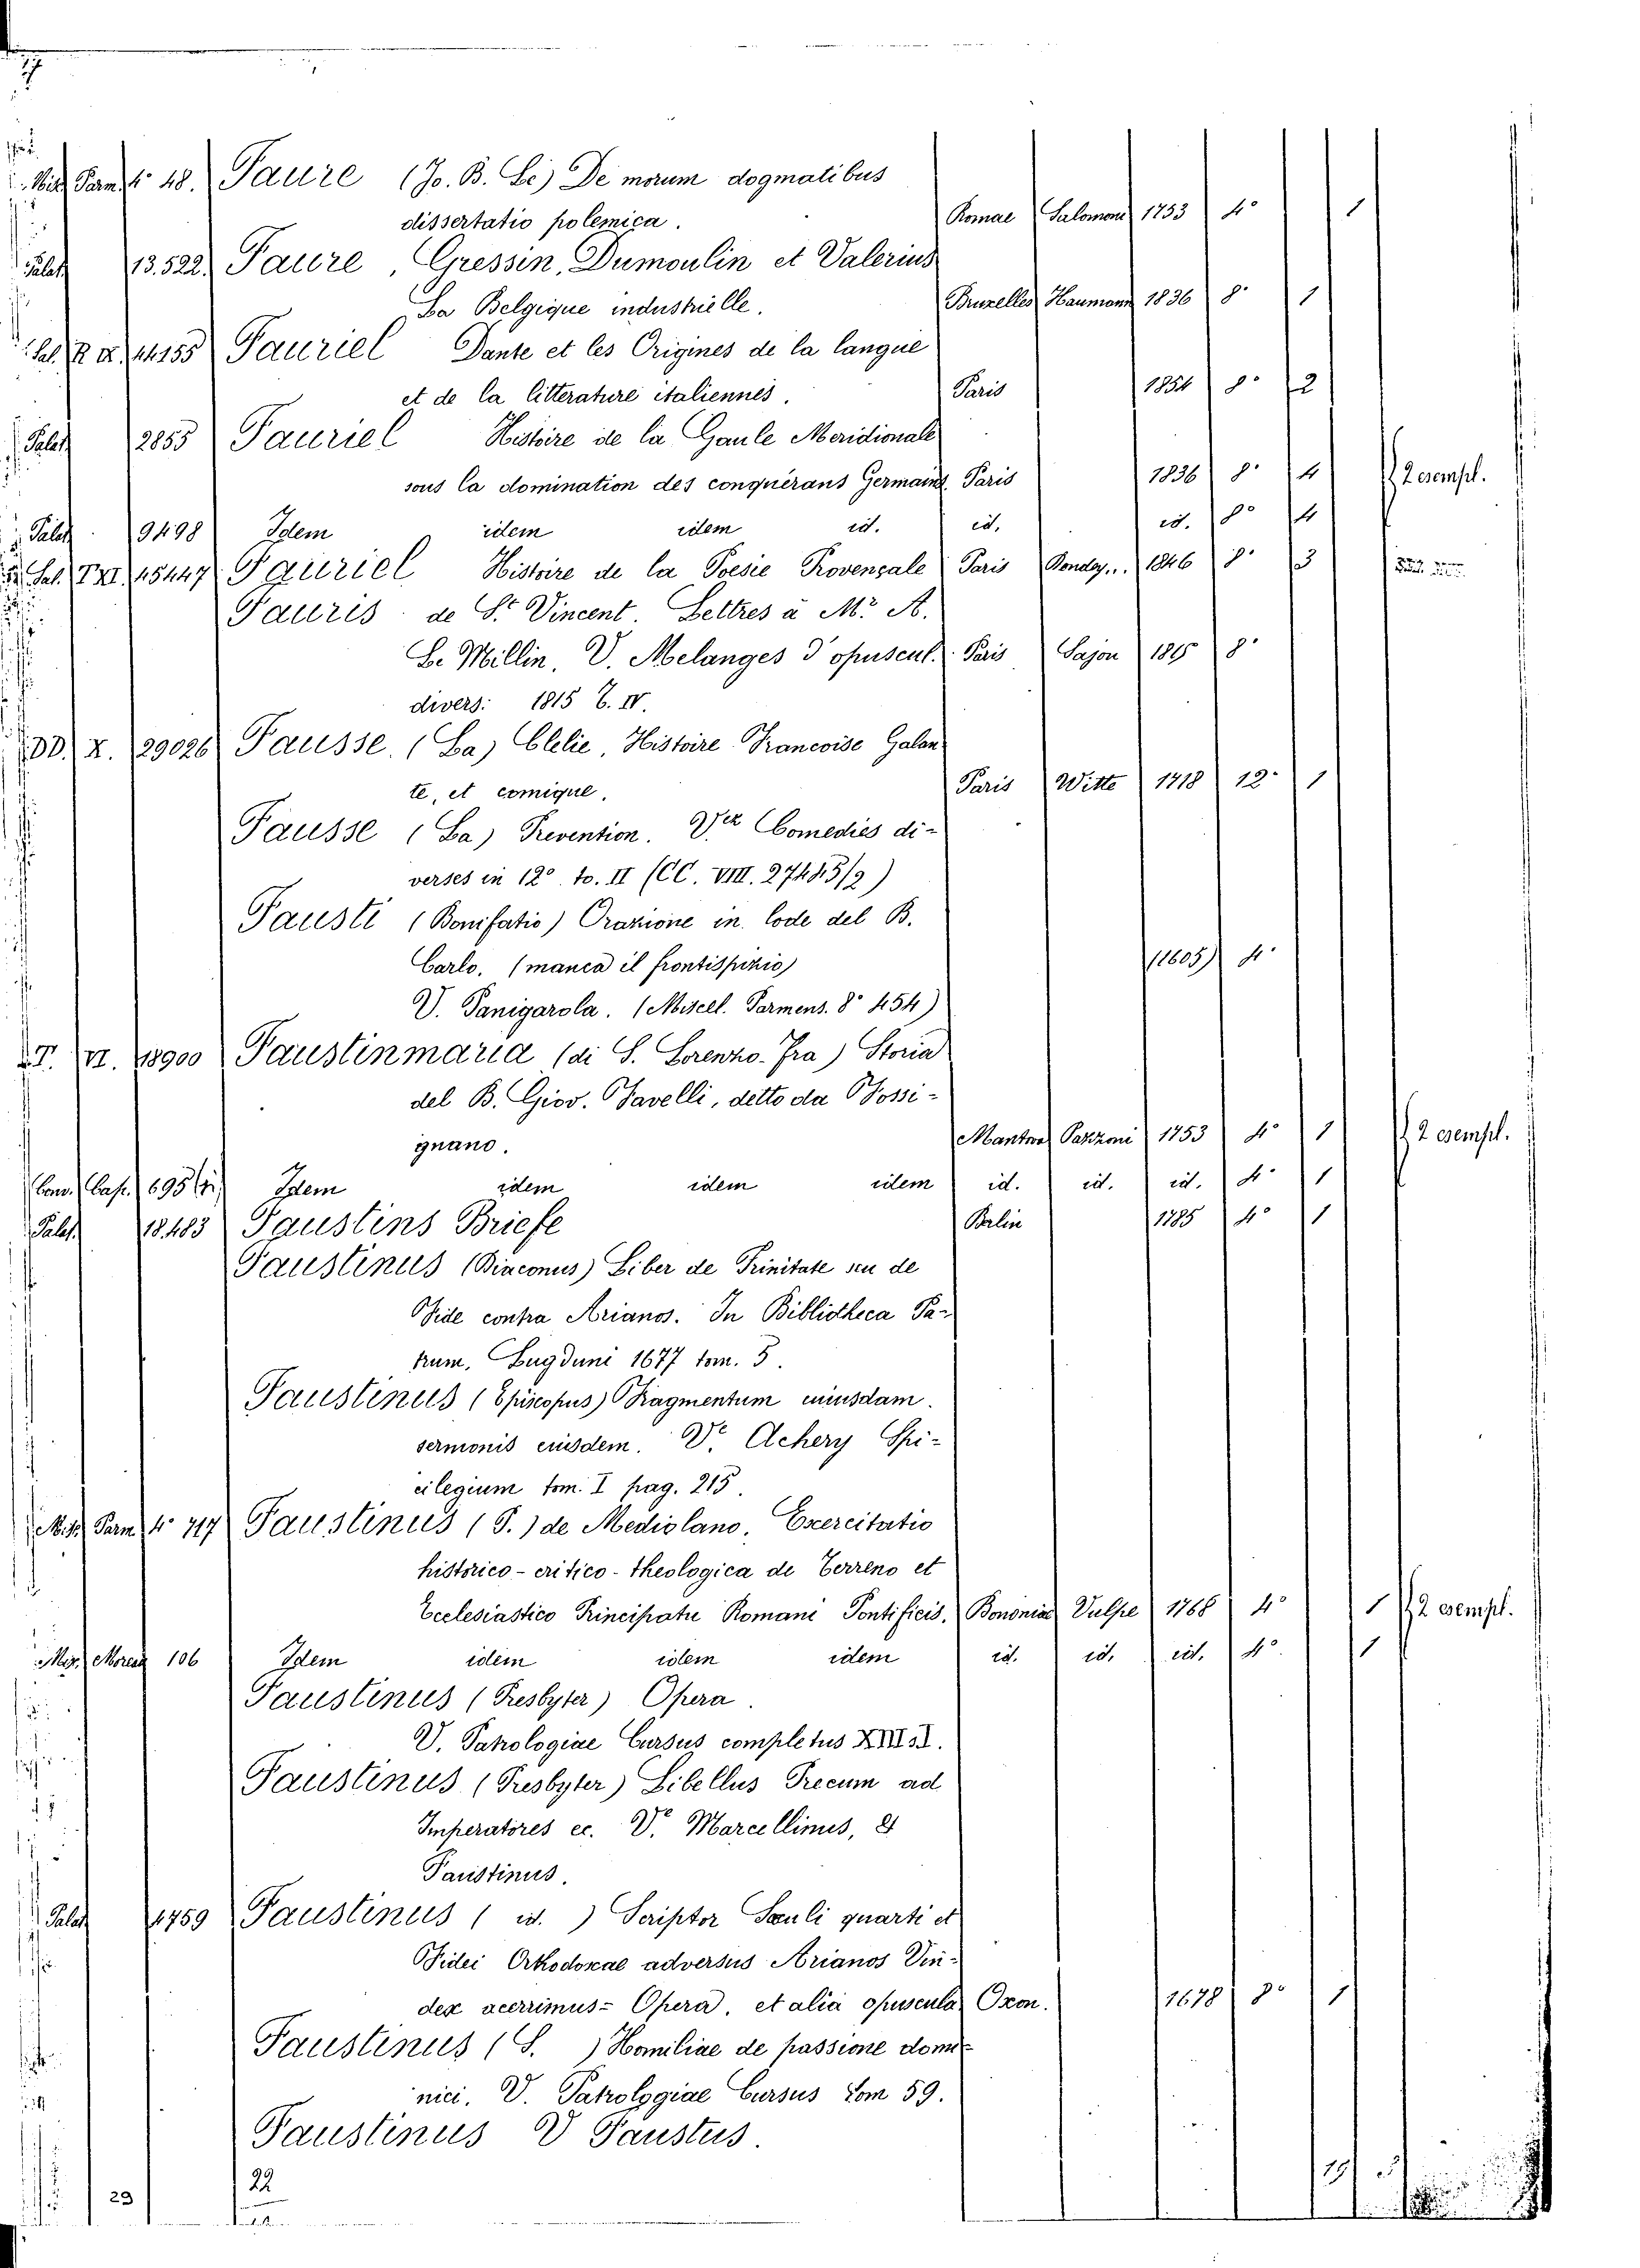 Parm 4° 48. Faure (Jo. B. Le) De morum dogmatibus
dissertatio polemica. Romae Salomoni 1753 4° 1
Palat 13.522. Faure, Gressin, Dumoulin et Valerius
La Belgique industrielle. Bruxelles Haumann 1836 8° 1
44155 Fauriel Dante et les Origines de la langue
et de la litterature italiennes. Paris 1854 8° 2
Palat 2855 Fauriel Histoire de la Gaule Meridionale
sous la domination des conquérans Germains Paris 1836 8° 4 2 esempl.
Palat 9498 Idem idem idem id. id. id. 8° 4
Sal. T.XI. 45447 Fauriel Histoire de la Poesie Provençale Paris 1846 8° 3
Fauris de St. Vincent. Lettres à Mr. A.
L. Millin, V. Melanges d'opuscul. Paris Sajon 1815 8°
divers: 1815 T. IV.
DD. X. 29026 Fausse (La) Clelie, Histoire Francoise Galan
te, et comique. Paris Witte 1718 12° 1
Fausse (La) Prevention. Vez Comedies di-
verses in 12° to. II (CC. VIII. 27485/2)
Fausti (Bonifatio) Orazione in lode del B.
Carlo. (manca il frontispizio) (1605) 4°
V. Panigarola. (Miscell. Parmens. 8° 454)
T. VI. 18900 Faustinmaria (di S. Lorenzo-Fra) Storia
del B. Giov. Tavelli, detto da Tossi-
gnano. Mantova Pazzoni 1753 4° 1 2 esempl.
Conv. Capp. 695 Idem idem idem idem id. id. id. 4° 1
Palat. 18.483 Faustins Briefe Berlin 1785 4° 1
Faustinus (Diaconus) Liber de Trinitate seu de
Fide contra Arianos. In Bibliotheca Pa-
trum. Lugduni 1677 tom. 5.
Faustinus (Episcopus) Fragmentum cuiusdam
sermonis eiusdem. Ve. Achery Spi-
cilegium tom. I pag. 215.
Misc. Parm. 4° 717 Faustinus (P.) de Mediolano. Exercitatio
historico-critico-theologica de Terreno et
Ecclesiastico Principatu Romani Pontificis. Bononiae Vulpe 1768 4° 1 2 esempl.
Moreau 106 Idem idem idem idem id. id. id. 4° 1
Faustinus (Presbyter) Opera.
V. Patrologiae Cursus completus
Faustinus (Presbyter) Libellus Precum ad
Imperatores ec. Ve. Marcellinus, et
Faustinus.
Palat 4759 Faustinus (id.) Scriptor Sæculi quarti et
Fidei Orthodoxae adversus Arianos Vin-
dex acerrimus- Opera, et alia opuscula Oxon. 1678 8° 1
Faustinus (S. ) Homiliae de passione domi-
nici. V. Patrologiae Cursus tom 59.
Faustinus V Faustus.
22
29